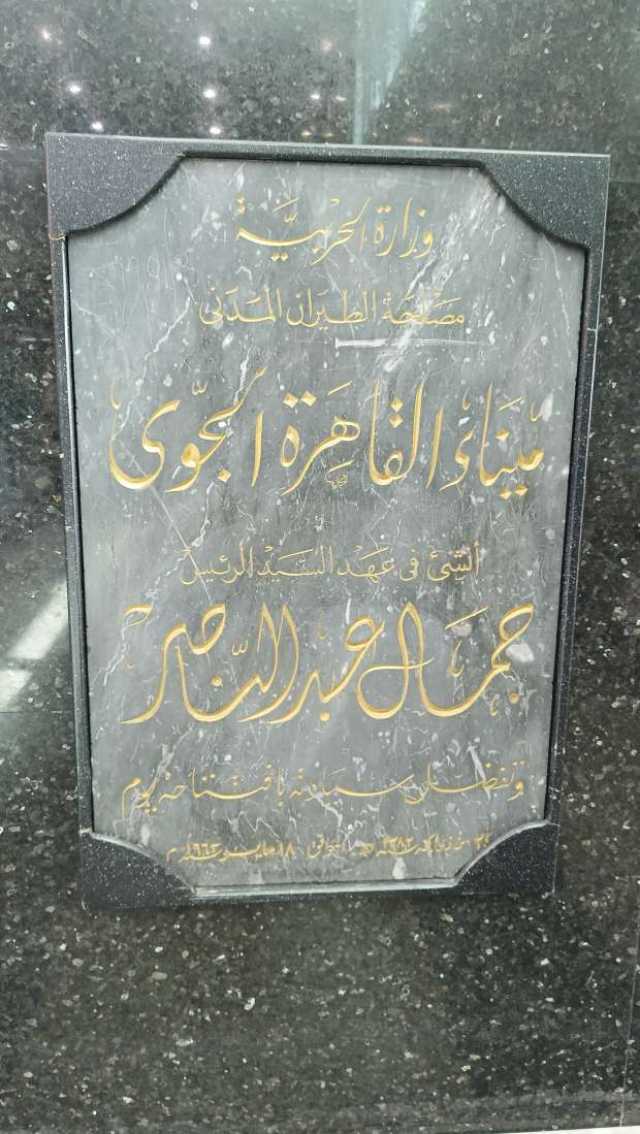 وزارة الحربية
مصلحة الطيران المدنى
ميناء القاهرة الجوى
أنشئ فى عهد السيد الرئيس
جمال عبد الناصر
وتفضل سيادته بافتتاحه يوم
من ذى الحجة ١٣٨٢ هـ الموافق ١٨ مايو ١٩٦٣ م